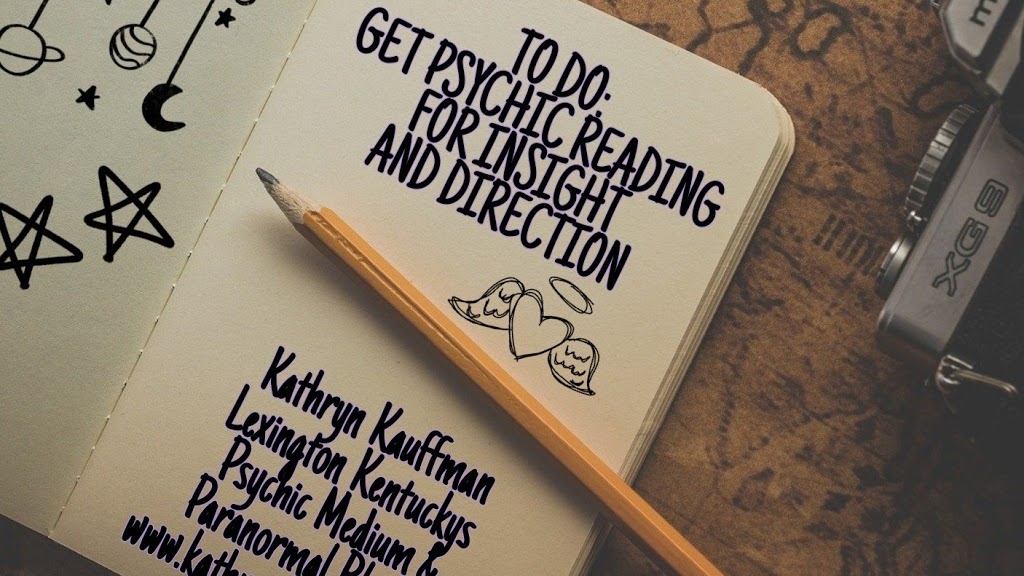 TO DO:
GET PSYCHIC READING
FOR INSIGHT
AND DIRECTION
Kathryn Kauffman
Lexington Kentuckys
Psychic Medium &
Paranormal
XG 8